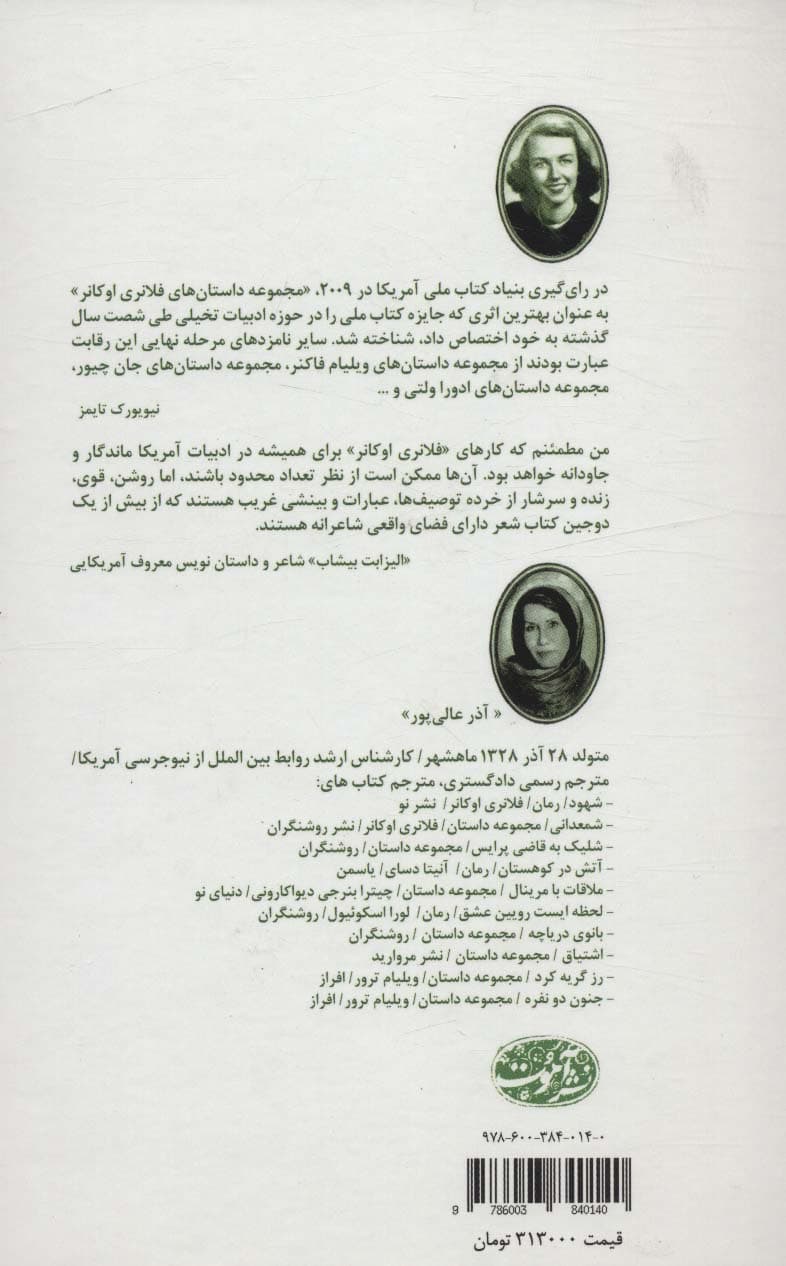 در رای‌گیری بنیاد کتاب ملی آمریکا در ۲۰۰۹، «مجموعه داستان‌های فلانری اوکانر»
به عنوان بهترین اثری که جایزه کتاب ملی را در حوزه ادبیات تخیلی طی شصت سال
گذشته به خود اختصاص داد، شناخته شد. سایر نامزدهای مرحله نهایی این رقابت
عبارت بودند از مجموعه داستان‌های ویلیام فاکنر، مجموعه داستان‌های جان چیور،
مجموعه داستان‌های ادورا ولتی و ...
نیویورک تایمز
من مطمئنم که کارهای «فلانری اوکانر» برای همیشه در ادبیات آمریکا ماندگار و
جاودانه خواهد بود. آن‌ها ممکن است از نظر تعداد محدود باشند، اما روشن، قوی،
زنده و سرشار از خرده توصیف‌ها، عبارات و بینشی غریب هستند که از بیش از یک
دوجین کتاب شعر دارای فضای واقعی شاعرانه هستند.
«الیزابت بیشاب» شاعر و داستان نویس معروف آمریکایی
« آذر عالی‌پور»
متولد ۲۸ آذر ۱۳۲۸ ماهشهر/ کارشناس ارشد روابط بین الملل از نیوجرسی آمریکا/
مترجم رسمی دادگستری، مترجم کتاب های:
- شهود/ رمان/ فلانری اوکانر/ نشر نو
- شمعدانی/ مجموعه داستان/ فلانری اوکانر/ نشر روشنگران
- شلیک به قاضی پرایس/ مجموعه داستان/ روشنگران
- آتش در کوهستان/ رمان/ آنیتا دسای/ یاسمن
- ملاقات با مرینال / مجموعه داستان/ چیترا بنرجی دیواکارونی/ دنیای نو
- لحظه ایست رویین عشق/ رمان/ لورا اسکوئیول/ روشنگران
- بانوی دریاچه / مجموعه داستان / روشنگران
- اشتیاق / مجموعه داستان / نشر مروارید
- رز گریه کرد / مجموعه داستان/ ویلیام ترور/ افراز
- جنون دو نفره / مجموعه داستان/ ویلیام ترور/ افراز
نشر آموت
۹۷۸-۶۰۰-۳۸۴-۰۱۴-۰
9 786003 840140
قیمت ۳۱۳۰۰۰ تومان